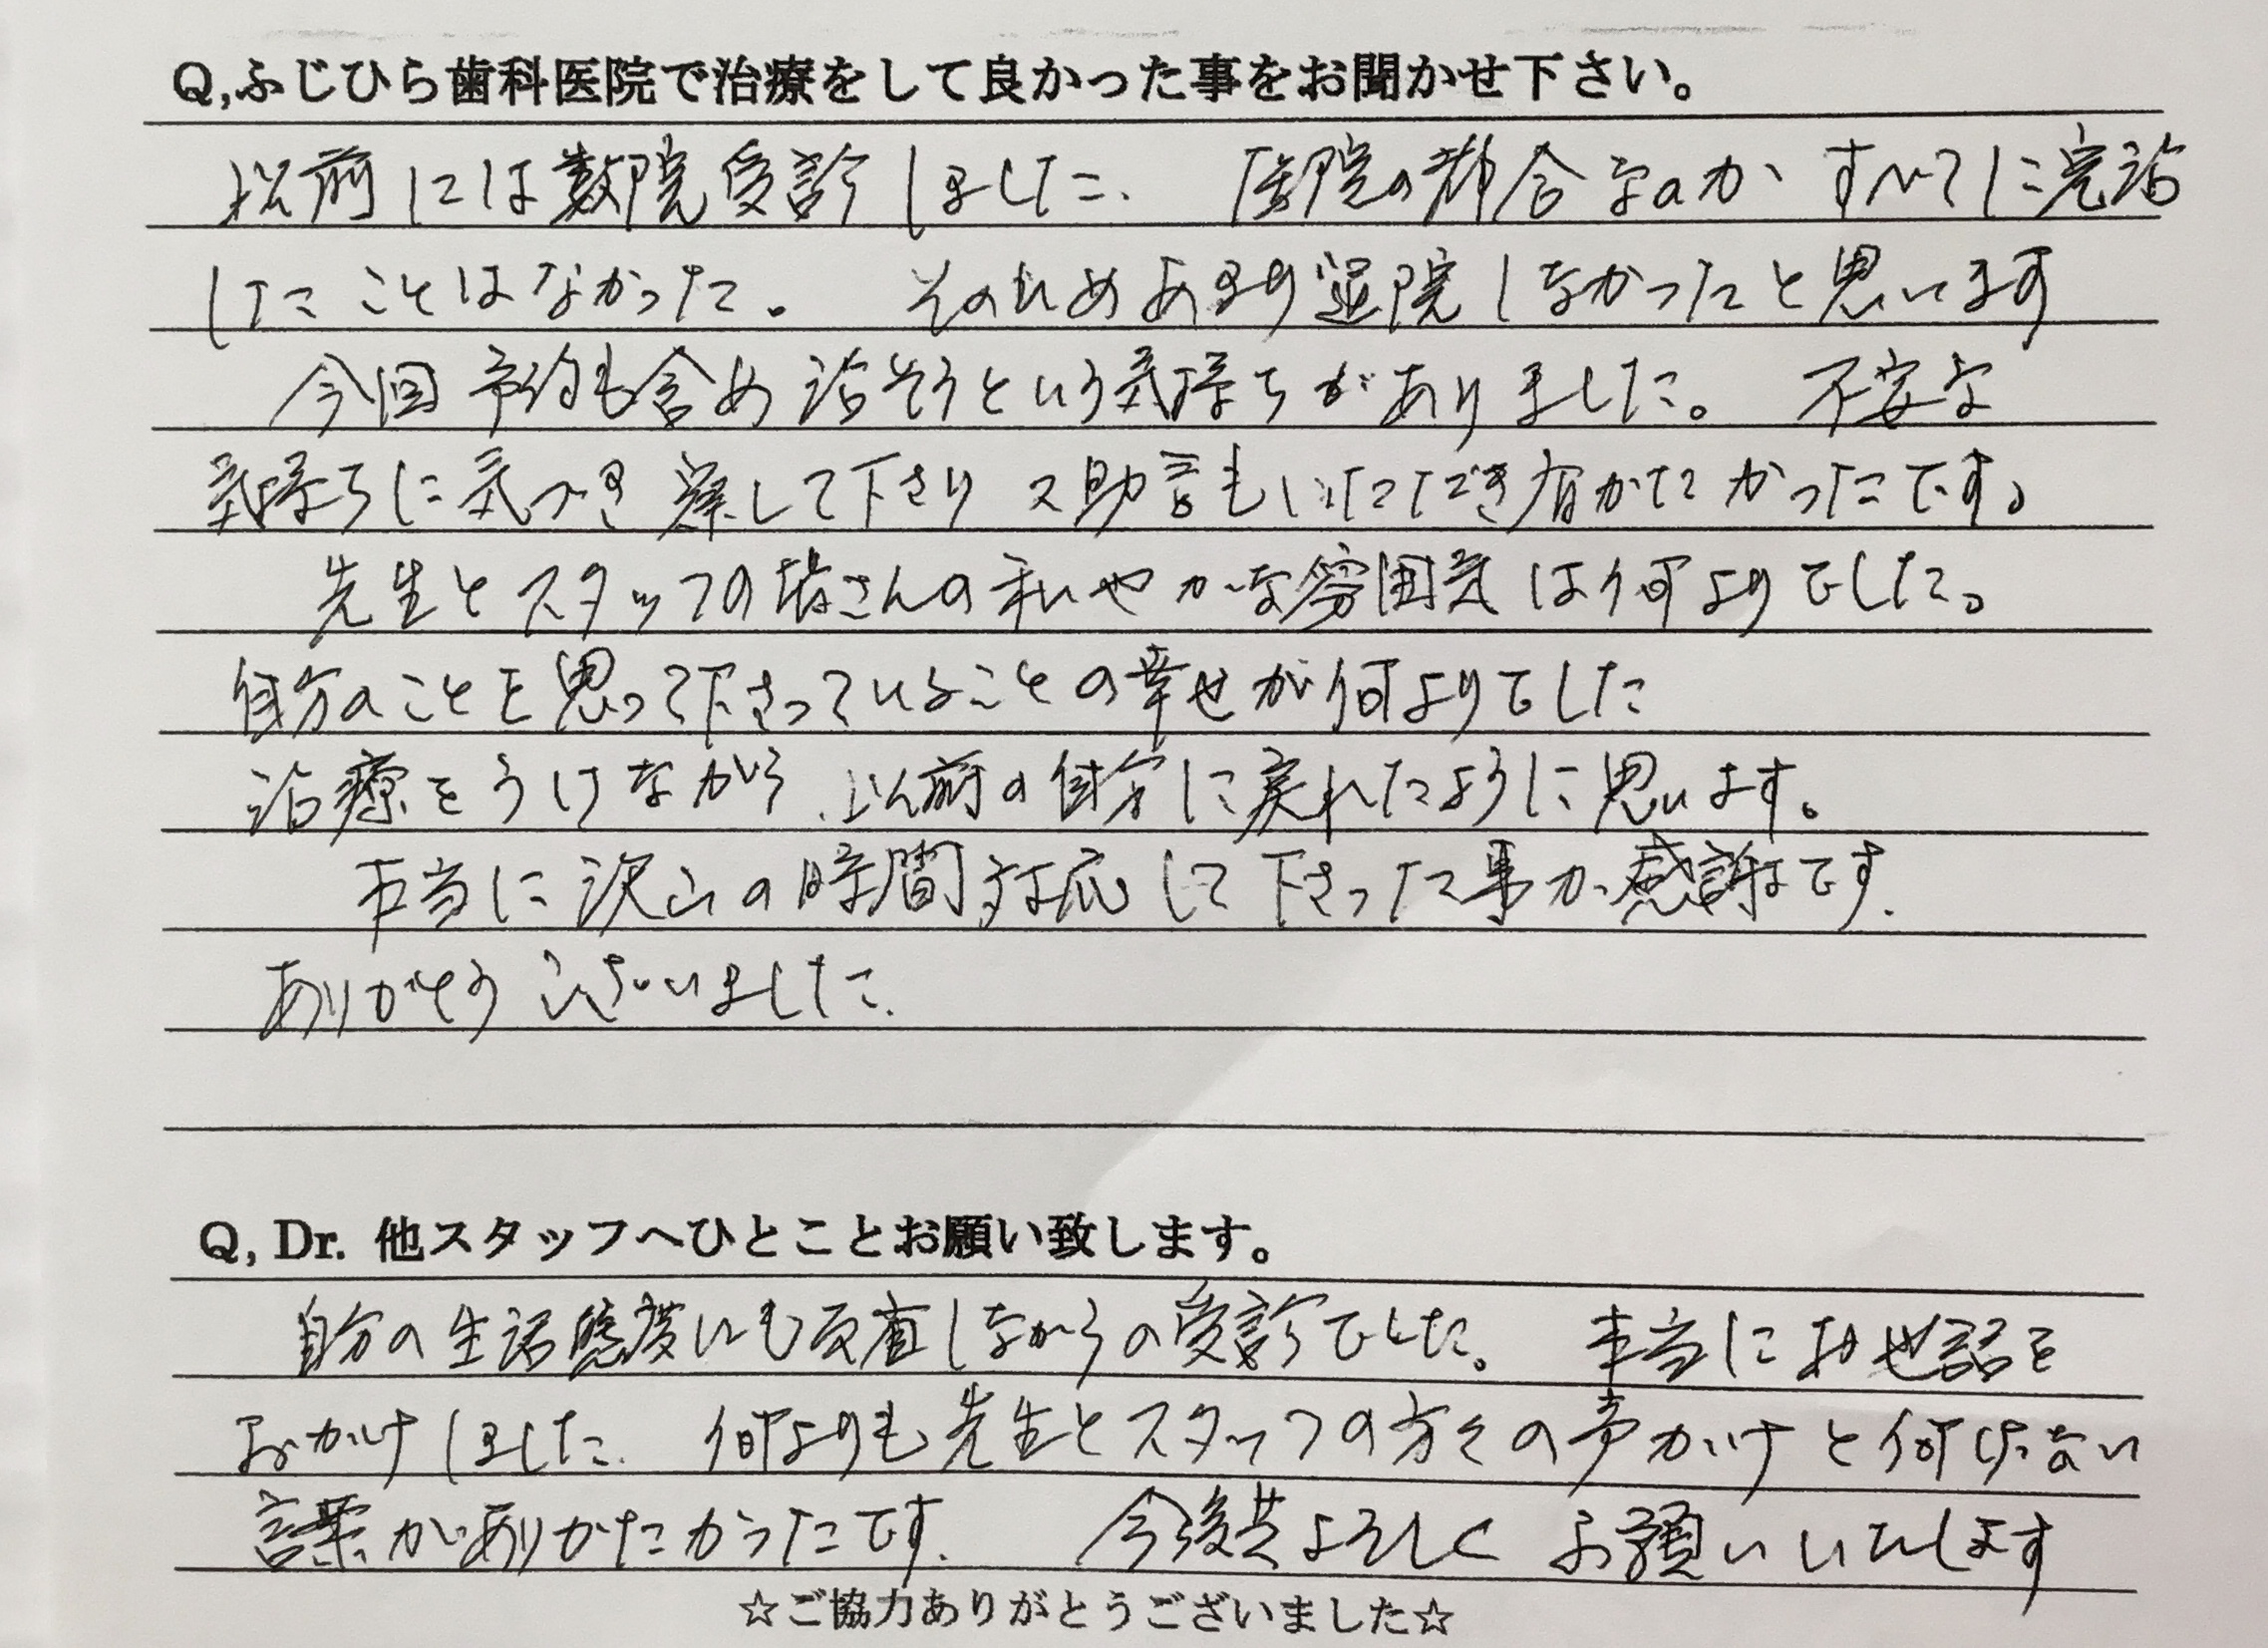 Q,ふじひら歯科医院で治療をして良かった事をお聞かせ下さい。
以前には数院受診しました. 医院の都合なのか すべてに完治
したことはなかった。 そのためあまり通院しなかったと思います
今回 予約も含め 治そうという気持ちがありました。 不安な
気持ちに気づき 察して下さり 又助言もいただき有がたかったです。
先生とスタッフの皆さんの和やかな雰囲気は何よりでした。
自分のことを思って下さっていることの幸せが何よりでした
治療をうけながら、以前の自分に戻れたように思います。
本当に沢山の時間対応して下さった事が感謝です.
ありがとうございました.
Q, Dr. 他スタッフへひとことお願い致します。
自分の生活態度にも反省しながらの受診でした。 本当にお世話を
おかけしました. 何よりも先生とスタッフの方々の声かけと何げない
言葉がありがたかったです. 今後共よろしくお願いいたします
☆ご協力ありがとうございました☆